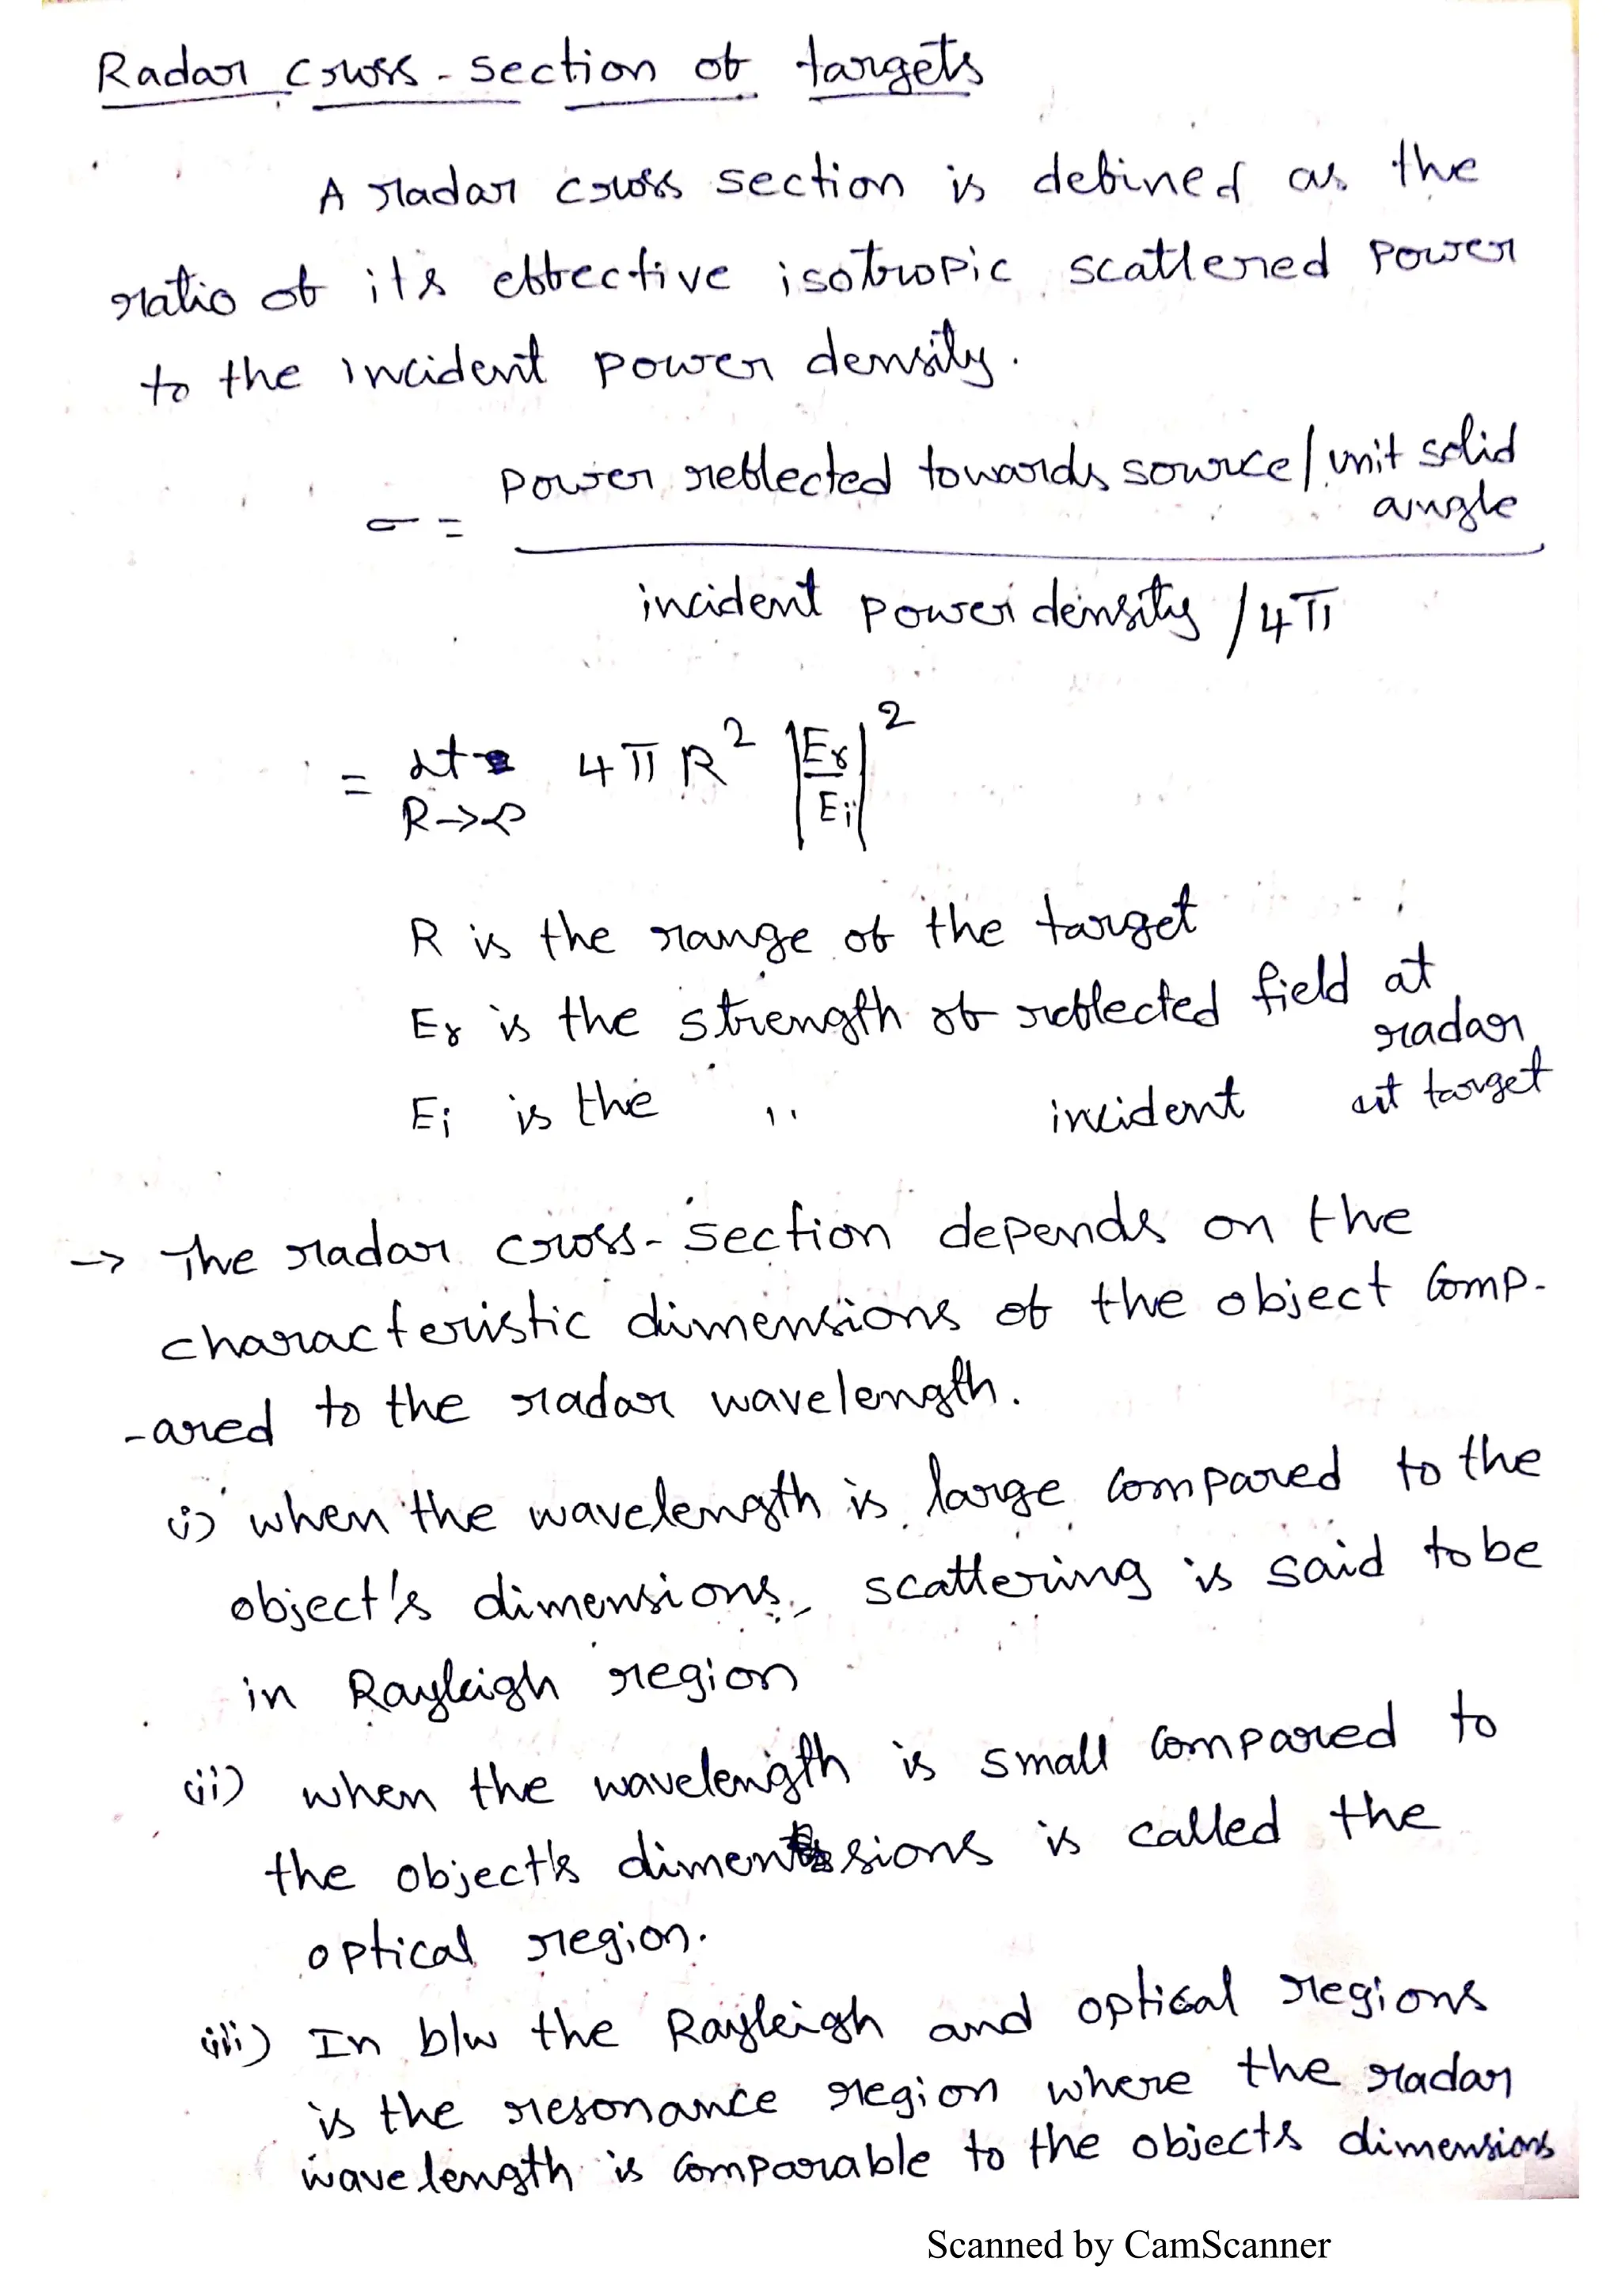 Radar cross-section of targets
A radar cross section is defined as the
ratio of it's effective isotropic scattered power
to the incident power density.
σ = power reflected towards source / unit solid angle
incident power density / 4π
= Lt R→∞ 4πR² |Er/Ei|²
R is the range of the target
Er is the strength of reflected field at radar
Ei is the " incident at target
→ The radar cross-section depends on the
characteristic dimensions of the object comp-
-ared to the radar wavelength.
(i) when the wavelength is large compared to the
object's dimensions, scattering is said to be
in Rayleigh region
(ii) when the wavelength is small compared to
the object's dimensions is called the
optical region.
(iii) In b/w the Rayleigh and optical regions
is the resonance region where the radar
wavelength is comparable to the objects dimensions
Scanned by CamScanner